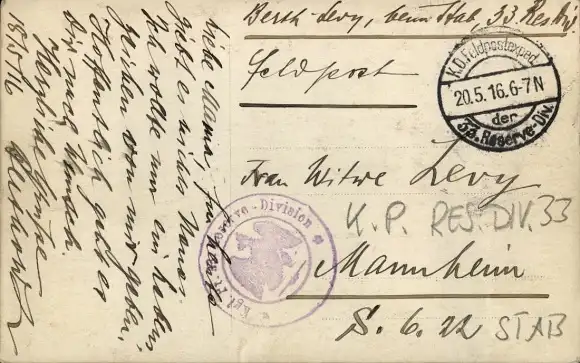 Berth Levy, beim Stab, 33. Res. Div.
Feldpost
K.D. Feldpostexped.
20.5.16.6-7N
der
33. Reserve-Div.
Frau Witwe Levy
K.P. RES.DIV.33
Mannheim
S. 6. 22
STAB
Reserve-Division
Kgl.
Liebe Mama, für heute
gibt es nichts Neues.
Ich wollte nur ein Lebens-
zeichen von mir geben.
Hoffentlich geht es
Dir nach Wunsch.
Herzliche Grüsse
Berthold
18/5.16